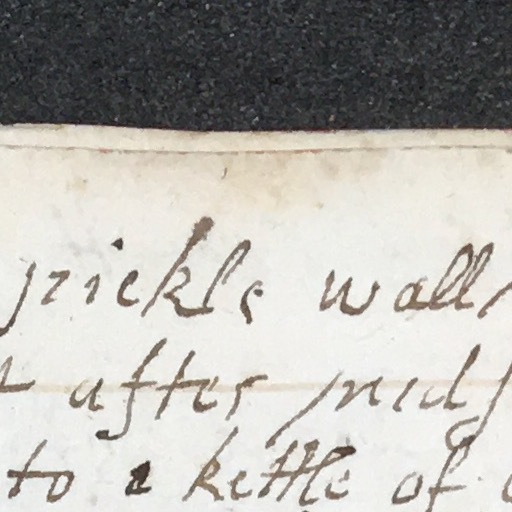 pickle wall
after mids
to a kettle of